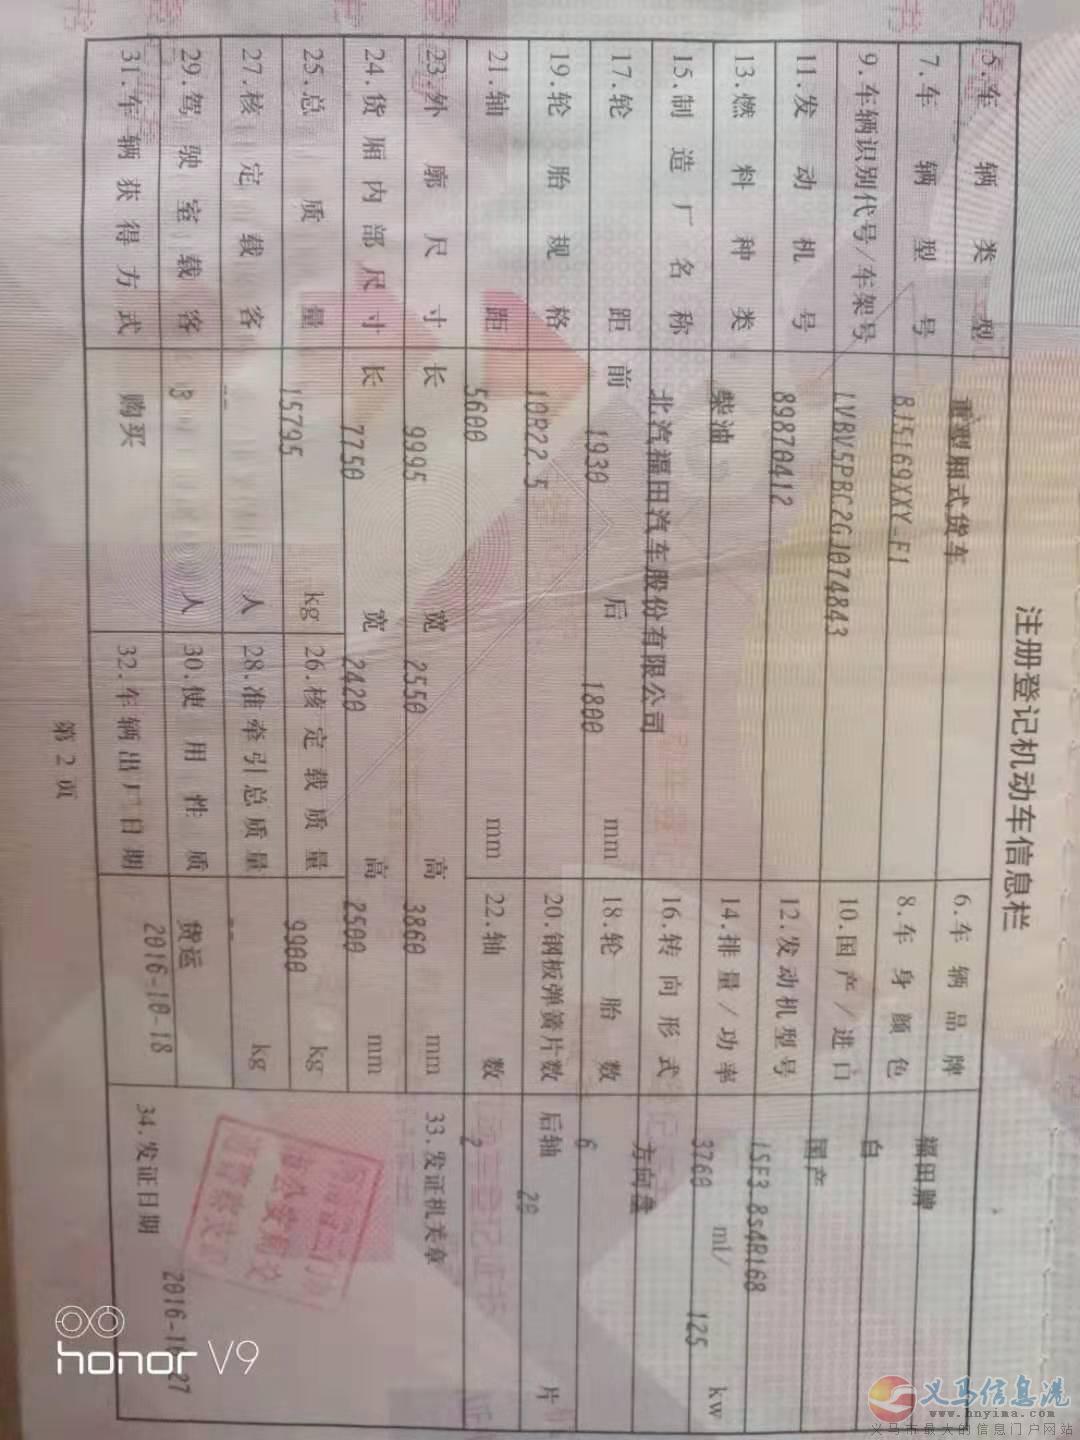 注册登记机动车信息栏
5.车辆类型 重型厢式货车 6.车辆品牌 福田牌
7.车辆型号 BJ5169XXY-F1 8.车身颜色 白
9.车辆识别代号/车架号 LVBV5PBC2GJ074843 10.国产/进口 国产
11.发动机号 89870412 12.发动机型号 ISF3.8s4R168
13.燃料种类 柴油 14.排量/功率 3760 ml/ 125 kw
15.制造厂名称 北汽福田汽车股份有限公司 16.转向形式 方向盘
17.轮距 前 1930 后 1800 mm 18.轮胎数 6
19.轮胎规格 10R22.5 20.钢板弹簧片数 后轴 片
21.轴距 5600 mm 22.轴数 2
23.外廓尺寸 长 9995 宽 2550 高 3860 mm
24.货厢内部尺寸 长 7750 宽 2420 高 2500 mm
25.总质量 15795 kg 26.核定载质量 9900 kg
27.核定载客 人 28.准牵引总质量 kg
29.驾驶室载客 3 人 30.使用性质 货运
31.车辆获得方式 购买 32.车辆出厂日期 2016-10-18
33.发证机关章
34.发证日期
第2页
honor V9
义马信息港
www.hnyima.com
义马市最大的信息门户网站